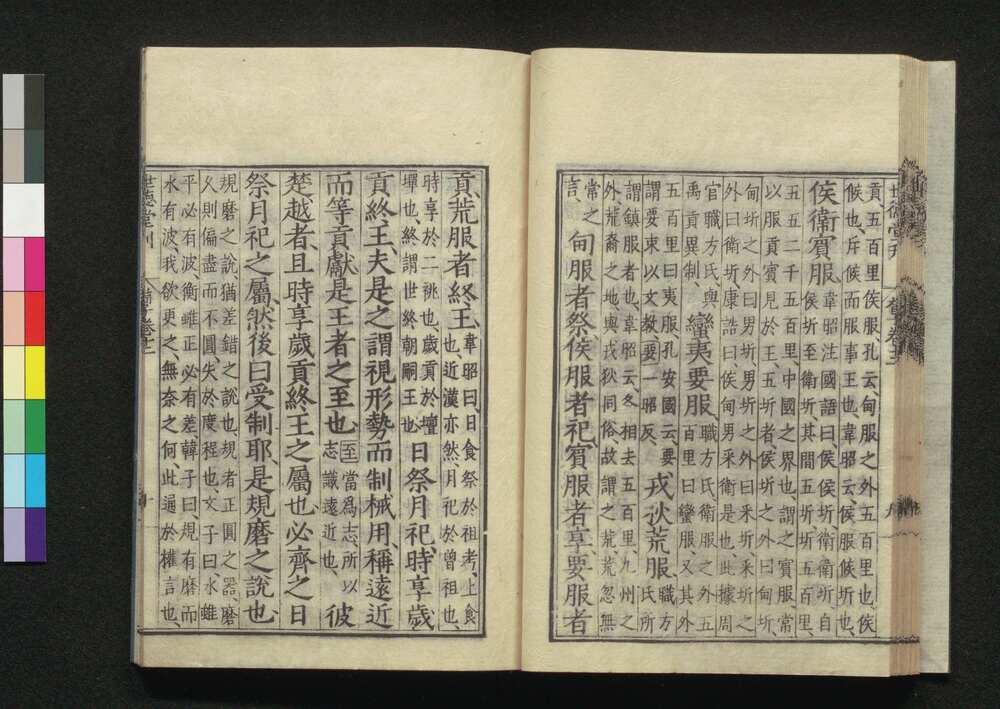 貢、五百里侯服、孔云甸服之外五百里也、侯
候也、斥候而服事王也、韋昭云侯服侯圻也、
侯衞賓服、韋昭注國語曰、侯侯圻、衞衞圻自
侯圻至衞圻其間五圻、圻五百里、
五五二千五百里、中國之界也、謂之賓服、常
以服貢賓見於王、五圻者、侯圻之外曰甸圻、
甸圻之外曰男圻、男圻之外曰采圻、采圻之
外曰衞圻、康誥曰、侯甸男采衞是也、此據周
官職方氏、與
禹貢異制、蠻夷要服、職方氏、衞服之外五
百里曰蠻服、又其外
五百里曰夷服、孔安國云、要
謂要束以文敎、要一昭反、戎狄荒服、職方
氏所
謂鎭服者也、韋昭云、各相去五百里、九州之
外荒裔之地、與戎狄同俗、故謂之荒、荒忽無
常之
言、甸服者祭、侯服者祀、賓服者享、要服者
貢、荒服者終王、韋昭曰、日食祭於祖考、上食
也、近漢亦然、月祀於曾祖也、
時享於二祧也、歲貢於壇
墠也、終謂世終朝嗣王也 日祭月祀時享歲
貢終王、夫是之謂視形勢而制械用、稱遠近
而等貢獻、是王者之至也、至當爲志、所以
志識遠近也 彼
楚越者、且時享歲貢終王之屬也、必齊之日
祭月祀之屬、然後曰受制耶、是規磨之說也、
規磨之說、猶差錯之說也、規者正圓之器、磨
久則偏盡而不圓、失於度程也、文子曰、水雖
平必有波、衡雖正必有差、韓子曰、規有磨而
水有波、我欲更之、無奈之何、此通於權言也、
世德堂刊